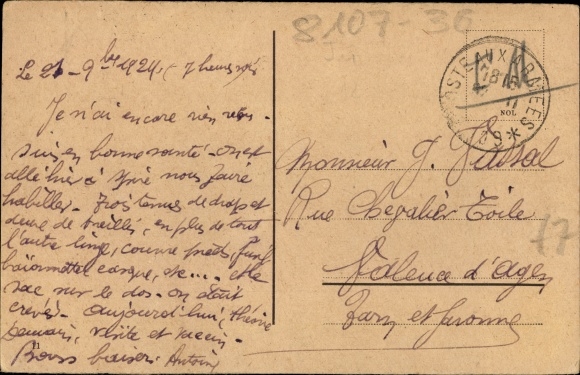 8107-36
Le 21 - 9bre 1924 (7 heures soir)
Je n'ai encore rien reçu -
suis en bonne santé - on est
allé hier à Ypres nous faire
habiller - Trois tenues de drap et
deux de treillis, en plus de tout
l'autre linge, couvre pieds,
baïonnette casque, etc... et le
sac sur le dos - on était
crevés - aujourd'hui, théorie
demain, visite et
Bons baisers. Antoine
POSTES AUX ARMEES
18 15
11
NOL
*89*
Monsieur J.
Rue Chevalier Toile
Valence d'Agen
Tarn et Garonne
17
11